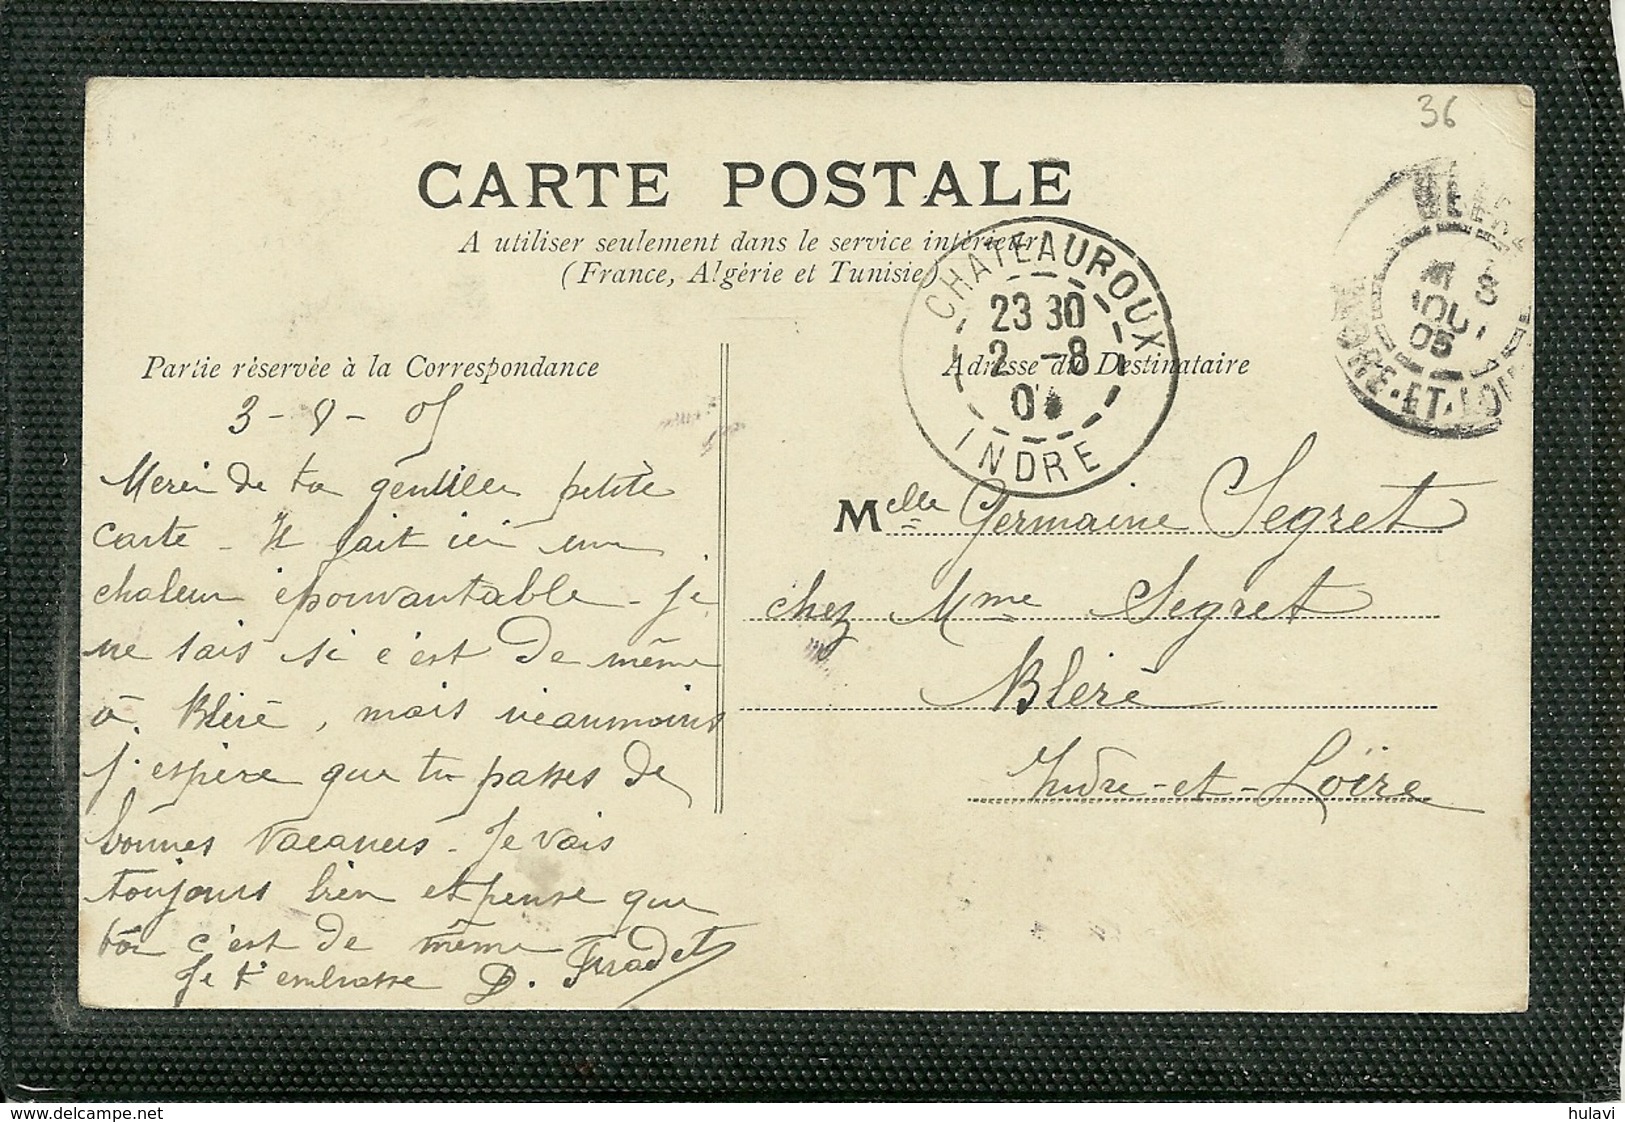 36
CARTE POSTALE
A utiliser seulement dans le service intérieur
(France, Algérie et Tunisie)
CHATEAUROUX
23 30
2 -8
0
INDRE
3
AOUT
05
INDRE-ET-LOIRE
Partie réservée à la Correspondance
Adresse du Destinataire
3-8-05
Merci de ta gentille petite
carte - Il fait ici une
chaleur épouvantable - Je
ne sais si c'est de même
à Bléré, mais néanmoins
j'espère que tu passes de
bonnes vacances - Je vais
toujours bien et pense que
toi c'est de même
Je t'embrasse D. Fradet
Melle Germaine Segret
chez Mme Segret
Bléré
Indre-et-Loire
delcampe.net
hulavi